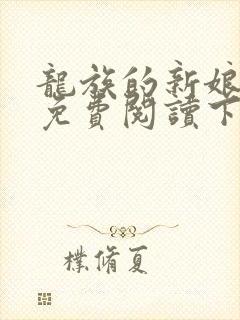 龍族的新娘
免費閱讀下
樸脩夏